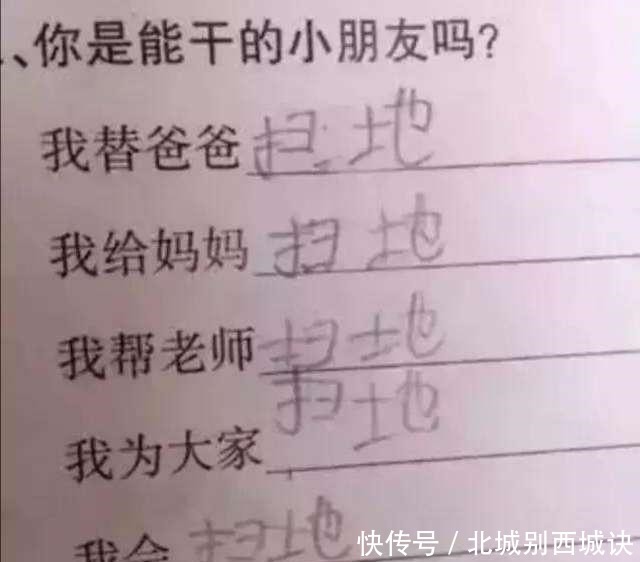 、你是能干的小朋友吗?
我替爸爸扫地
我给妈妈扫地
我帮老师扫地
我为大家扫地
我会扫地
快传号 / 北城别西城诀